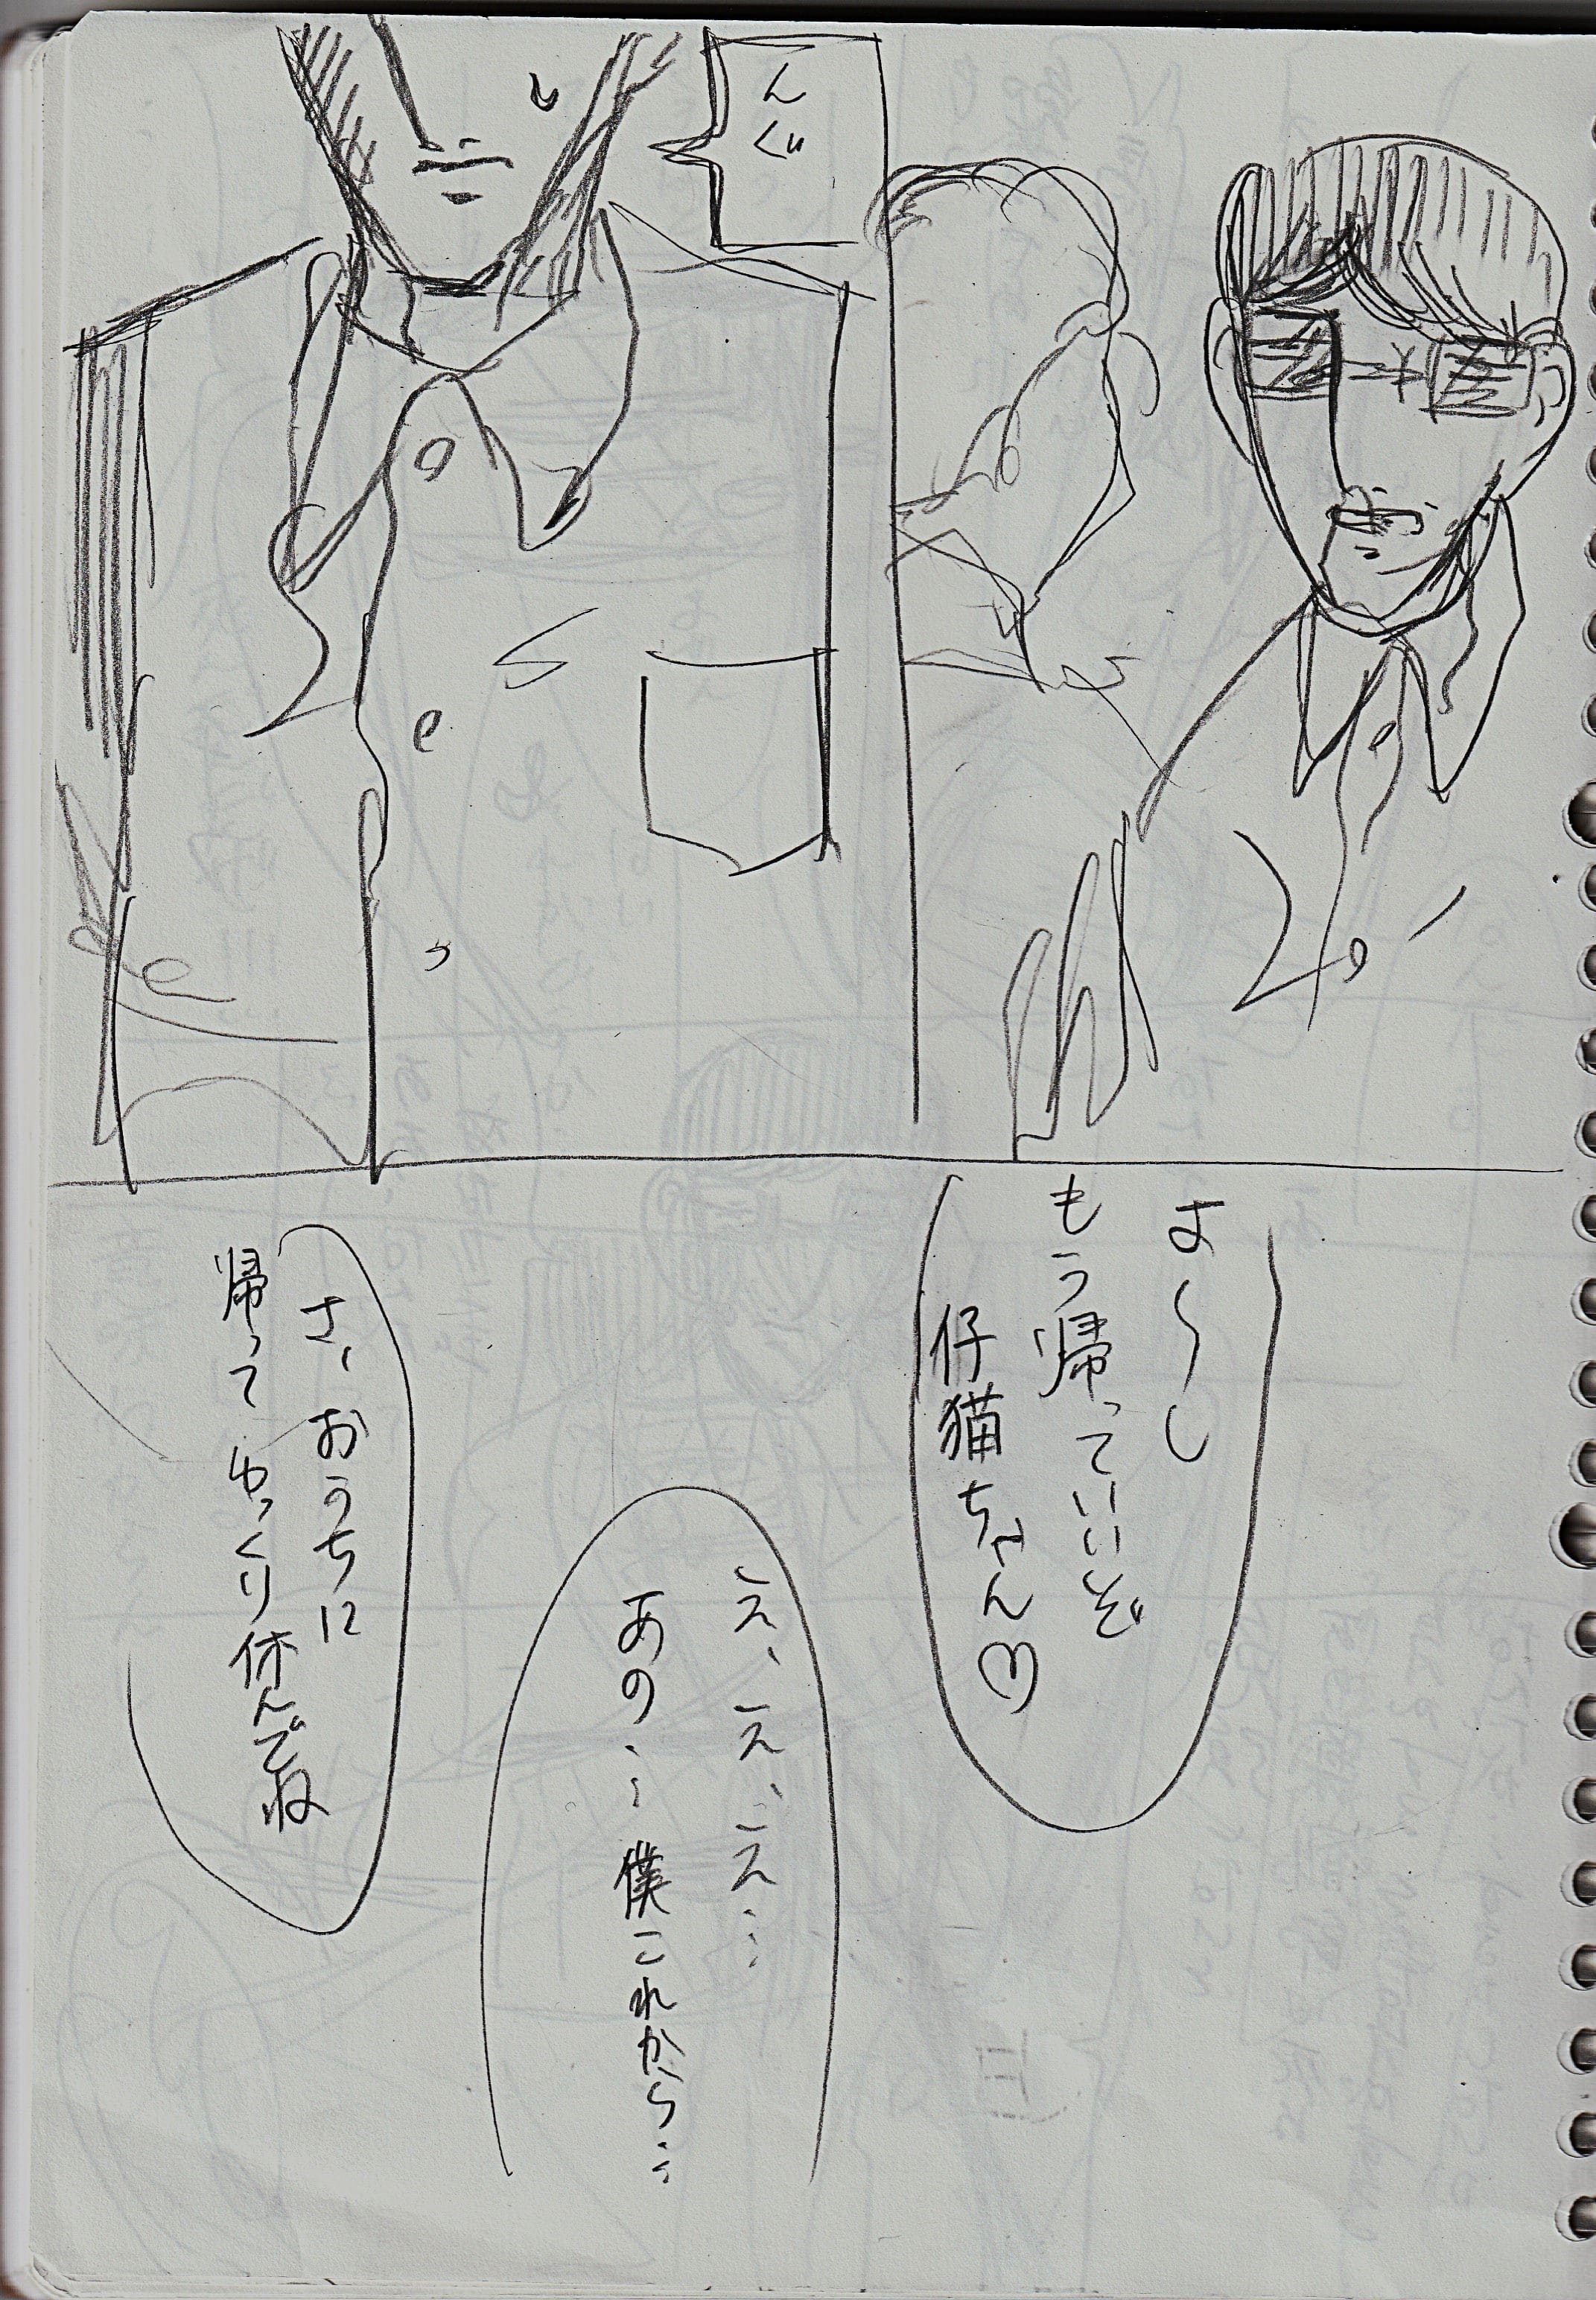 んぐ
よ〜し
もう帰っていいぞ
仔猫ちゃん♡
え、え、え…
あの…僕これから…
さ、おうちに
帰って ゆっくり休んでね